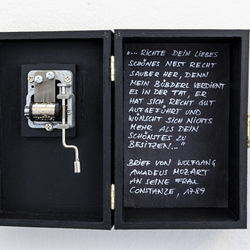 „... RICHTE DEIN LIEBES
SCHÖNES NEST RECHT
SAUBER HER, DENN
MEIN BÜBDERL VERDIENT
ES IN DER TAT, ER
HAT SICH RECHT GUT
AUFGEFÜHRT UND
WÜNSCHT SICH NICHTS
MEHR ALS DEIN
SCHÖNSTES ZU
BESITZEN..."
BRIEF VON WOLFGANG
AMADEUS MOZART
AN SEINE FRAU
CONSTANZE, 1789